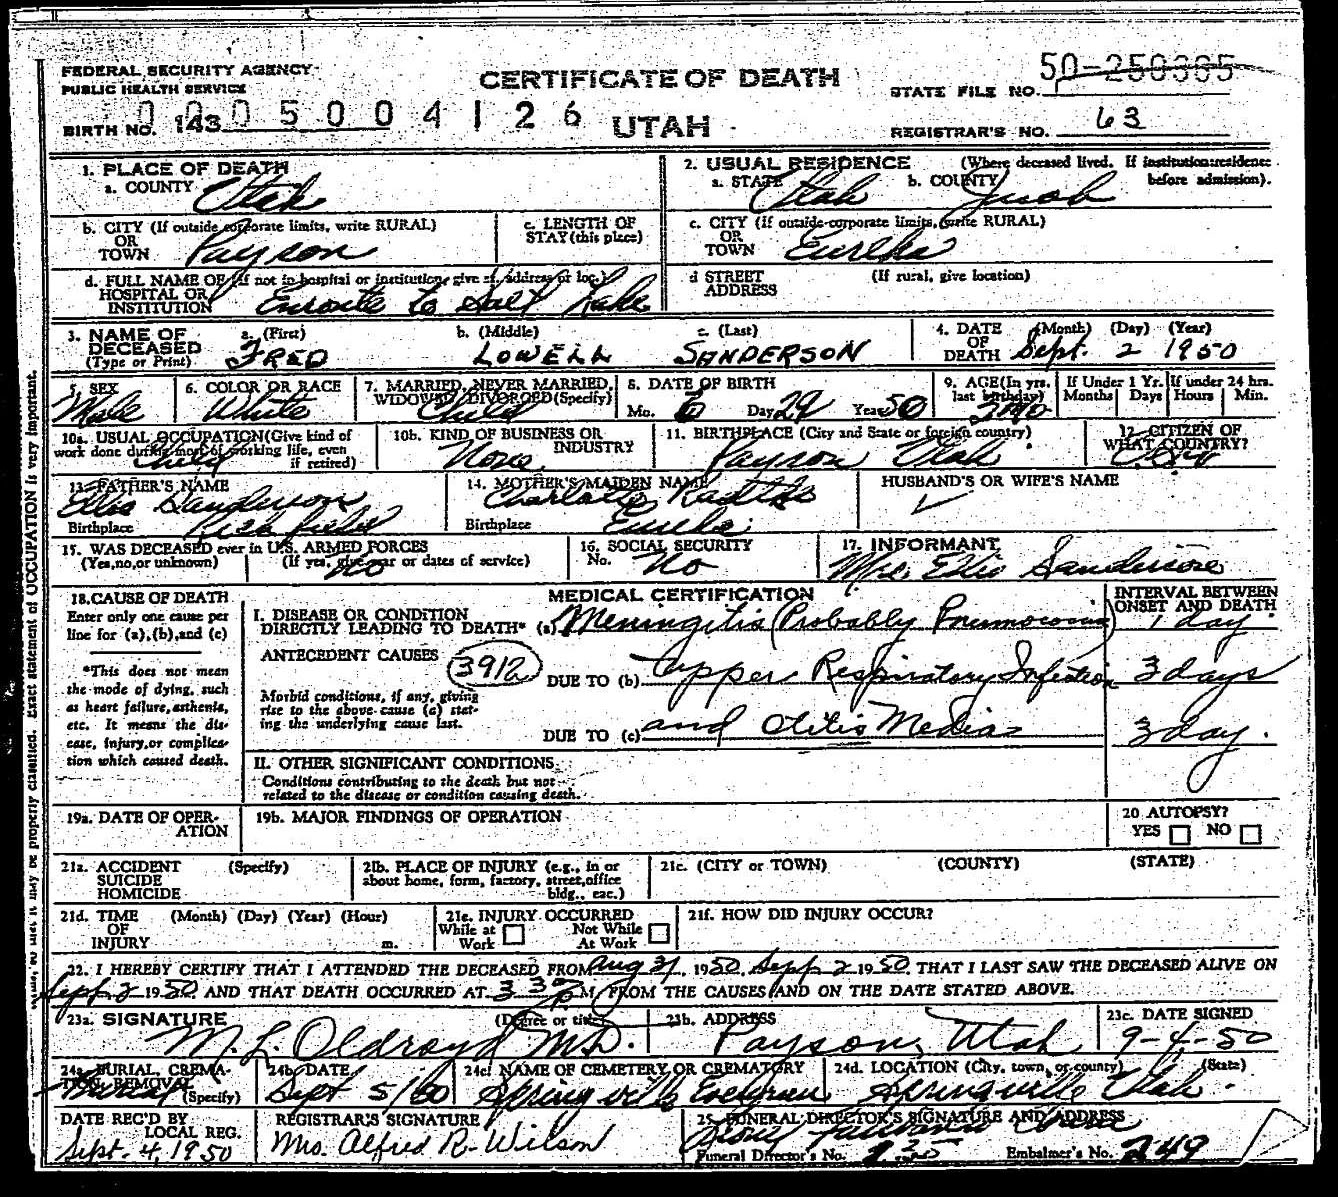 FEDERAL SECURITY AGENCY
PUBLIC HEALTH SERVICE
CERTIFICATE OF DEATH
STATE FILE NO. 50-250305
BIRTH NO. 143
0005004126
UTAH
REGISTRAR'S NO. 63
1. PLACE OF DEATH
a. COUNTY Utah
2. USUAL RESIDENCE (Where deceased lived. If institution: residence before admission).
a. STATE Utah b. COUNTY Juab
b. CITY (If outside corporate limits, write RURAL) OR TOWN Payson
c. LENGTH OF STAY (this place)
c. CITY (If outside corporate limits, write RURAL) OR TOWN Eureka
d. FULL NAME OF (If not in hospital or institution, give st. address or loc.) HOSPITAL OR INSTITUTION Enroute to Salt Lake
d STREET ADDRESS (If rural, give location)
3. NAME OF DECEASED (Type or Print)
a. (First) FRED b. (Middle) LOWELL c. (Last) SANDERSON
4. DATE OF DEATH (Month) (Day) (Year) Sept. 2 1950
5. SEX Male
6. COLOR OR RACE White
7. MARRIED, NEVER MARRIED, WIDOWED, DIVORCED (Specify) Child
8. DATE OF BIRTH Mo. 6 Day 29 Year 50
9. AGE (In yrs. last birthday) 2 mo
If Under 1 Yr. Months Days
If under 24 hrs. Hours Min.
10a. USUAL OCCUPATION (Give kind of work done during most of working life, even if retired) Child
10b. KIND OF BUSINESS OR INDUSTRY None
11. BIRTHPLACE (City and State or foreign country) Payson Utah
12. CITIZEN OF WHAT COUNTRY?
13. FATHER'S NAME Ellis Sanderson
Birthplace Richfield
14. MOTHER'S MAIDEN NAME Charlotte
Birthplace Eureka
HUSBAND'S OR WIFE'S NAME
15. WAS DECEASED ever in U.S. ARMED FORCES (Yes, no, or unknown) (If yes, give war or dates of service) No
16. SOCIAL SECURITY No. No
17. INFORMANT Mrs. Ellis Sanderson
18. CAUSE OF DEATH
Enter only one cause per line for (a), (b), and (c)
*This does not mean the mode of dying, such as heart failure, asthenia, etc. It means the disease, injury, or complication which caused death.
MEDICAL CERTIFICATION
INTERVAL BETWEEN ONSET AND DEATH
I. DISEASE OR CONDITION DIRECTLY LEADING TO DEATH* (a) Meningitis (Probably Pneumococcus) 1 day
ANTECEDENT CAUSES 3912
Morbid conditions, if any, giving rise to the above cause (a) stating the underlying cause last.
DUE TO (b) Upper Respiratory Infection 3 days
DUE TO (c) and Otitis Media 3 day.
II. OTHER SIGNIFICANT CONDITIONS
Conditions contributing to the death but not related to the disease or condition causing death.
19a. DATE OF OPERATION
19b. MAJOR FINDINGS OF OPERATION
20 AUTOPSY? YES NO
21a. ACCIDENT SUICIDE HOMICIDE (Specify)
21b. PLACE OF INJURY (e.g., in or about home, form, factory, street, office bldg., etc.)
21c. (CITY or TOWN) (COUNTY) (STATE)
21d. TIME OF INJURY (Month) (Day) (Year) (Hour) m.
21e. INJURY OCCURRED While at Work Not While At Work
21f. HOW DID INJURY OCCUR?
22. I HEREBY CERTIFY THAT I ATTENDED THE DECEASED FROM Aug 31, 1950, Sept 2 1950 THAT I LAST SAW THE DECEASED ALIVE ON
Sept 2 1950 AND THAT DEATH OCCURRED AT 3 30 P M, FROM THE CAUSES AND ON THE DATE STATED ABOVE.
23a. SIGNATURE (Degree or title) M. L. Oldroyd M.D.
23b. ADDRESS Payson, Utah
23c. DATE SIGNED 9-4-50
24a. BURIAL, CREMATION, REMOVAL (Specify) Burial
24b. DATE Sept 5/50
24c. NAME OF CEMETERY OR CREMATORY Springville Evergreen
24d. LOCATION (City, town, or county) (State) Springville Utah
DATE REC'D BY LOCAL REG. Sept. 4, 1950
REGISTRAR'S SIGNATURE Mrs. Alfred R. Wilson
25. FUNERAL DIRECTOR'S SIGNATURE AND ADDRESS
Funeral Director's No. Embalmer's No. 249
Exact statement of OCCUPATION is very important.
may be properly classified.